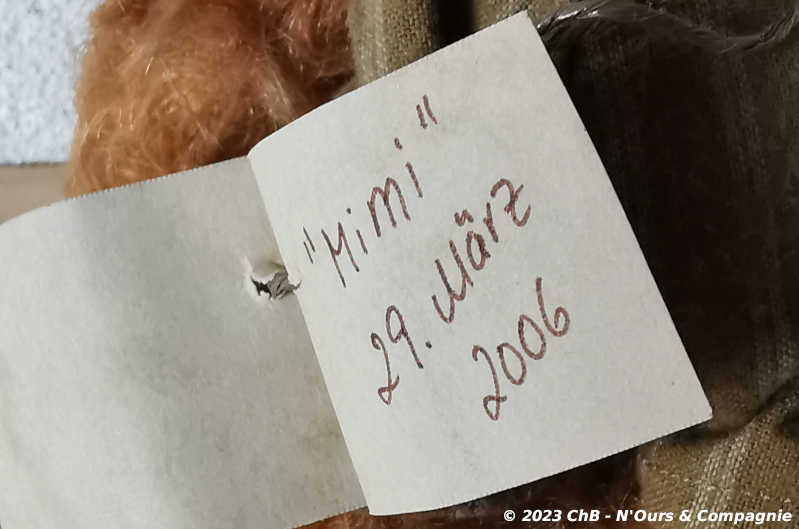 "Mimi"
29. März
2006
© 2023 ChB - N'Ours & Compagnie